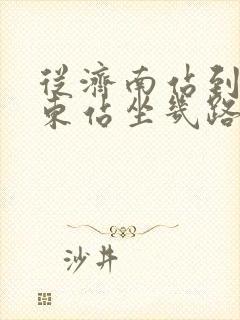 從濟南佔到
東佔坐幾路
沙井